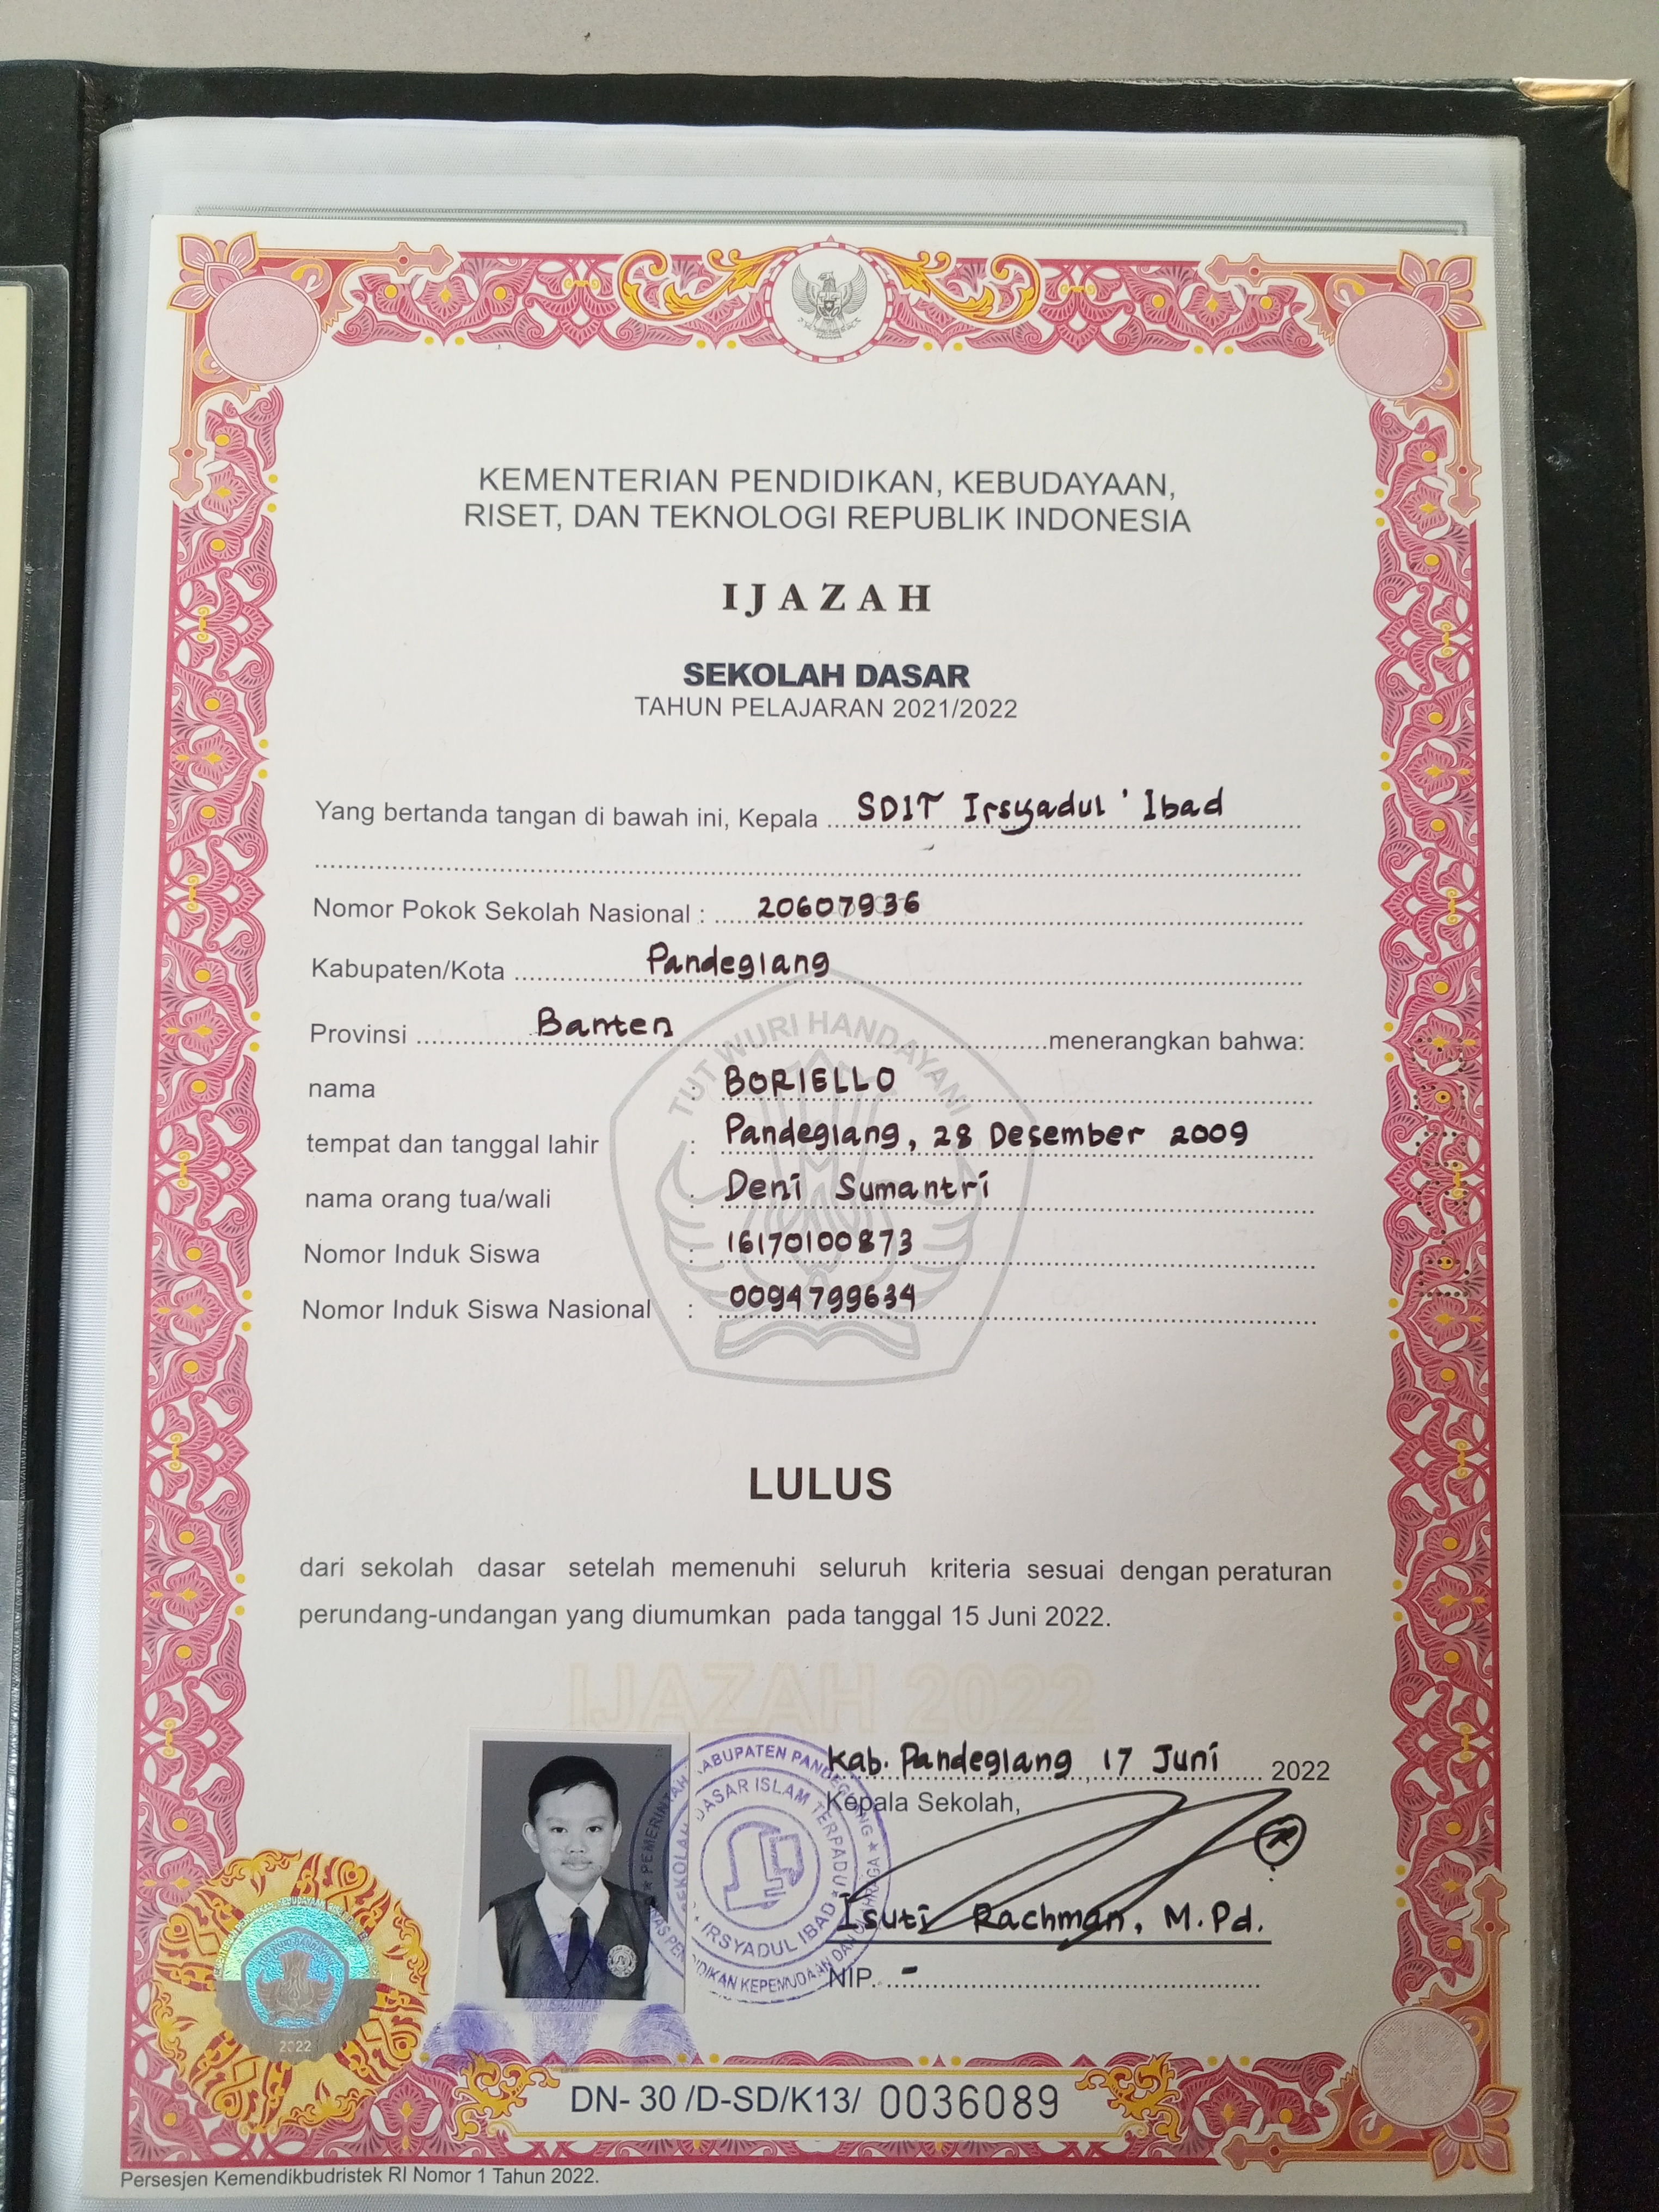 KEMENTERIAN PENDIDIKAN, KEBUDAYAAN,
RISET, DAN TEKNOLOGI REPUBLIK INDONESIA
IJAZAH
SEKOLAH DASAR
TAHUN PELAJARAN 2021/2022
Yang bertanda tangan di bawah ini, Kepala SDIT Irsyadul 'Ibad
Nomor Pokok Sekolah Nasional : 20607936
Kabupaten/Kota Pandeglang
Provinsi Banten menerangkan bahwa:
TUT WURI HANDAYANI
nama : BORIELLO
tempat dan tanggal lahir : Pandeglang, 28 Desember 2009
nama orang tua/wali : Deni Sumantri
Nomor Induk Siswa : 16170100873
Nomor Induk Siswa Nasional : 0094799634
LULUS
dari sekolah dasar setelah memenuhi seluruh kriteria sesuai dengan peraturan
perundang-undangan yang diumumkan pada tanggal 15 Juni 2022.
IJAZAH 2022
Kab. Pandeglang, 17 Juni 2022
Kepala Sekolah,
Isuti Rachman, M.Pd.
NIP. -
PEMERINTAH KABUPATEN PANDEGLANG
SEKOLAH DASAR ISLAM TERPADU
IRSYADUL IBAD
DINAS PENDIDIKAN KEPEMUDAAN DAN OLAHRAGA
2022
DN- 30 /D-SD/K13/ 0036089
Persesjen Kemendikbudristek RI Nomor 1 Tahun 2022.